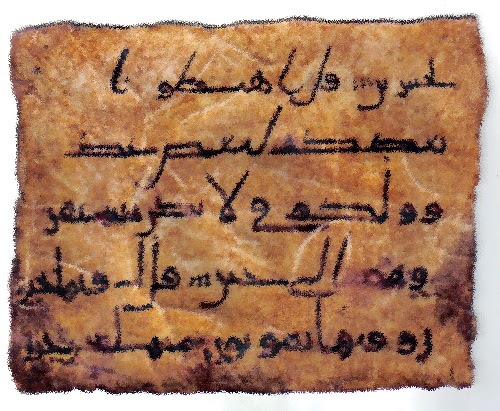 لخسرين قل اهبطوا
بعضكم لبعض عد
و ولكم في الارض مستقر
ومتع الى حين قل فيها تحيو
ن وفيها تموتون ومنها تخر